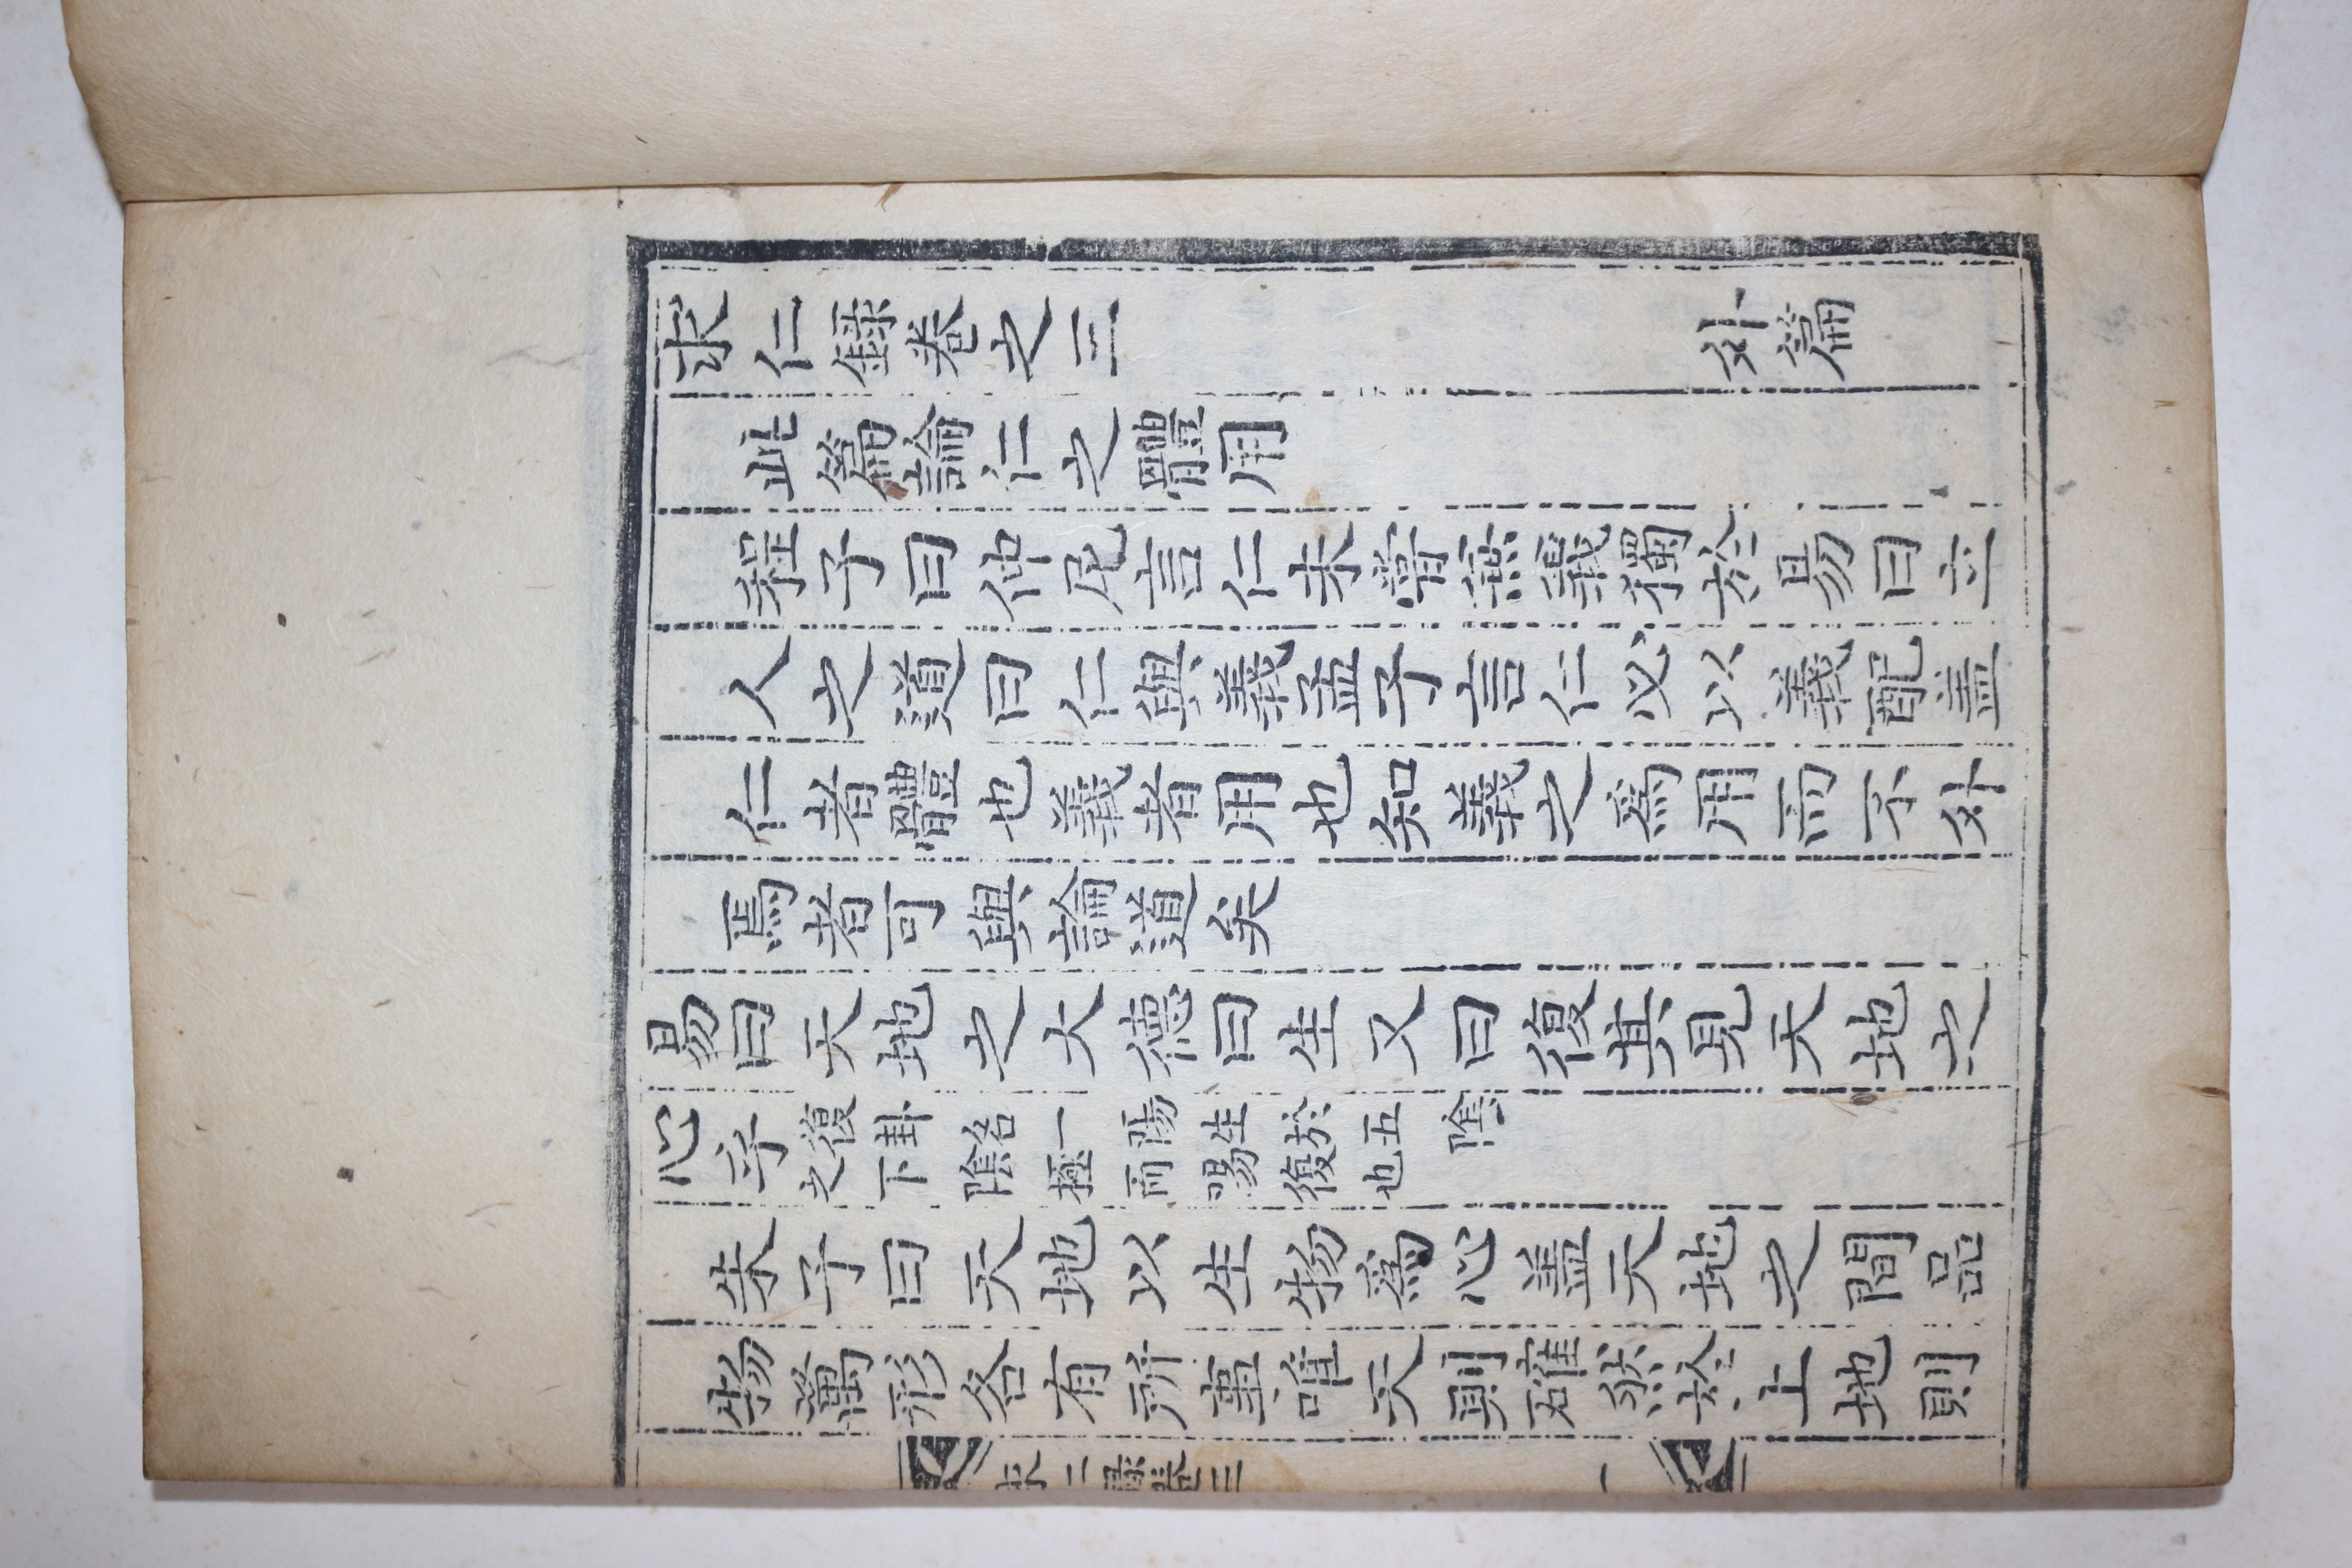 求仁錄卷之三 外篇
此篇論仁之體用
程子曰仲尼言仁未嘗兼義獨於易曰立
人之道曰仁與義孟子言仁必以義配盖
仁者體也義者用也知義之爲用而不外
焉者可與論道矣
易曰天地之大德曰生又曰復其見天地之
心乎復卦名一陽生於五陰
之下陰極而陽復也
朱子曰天地以生物爲心盖天地之間品
物萬形各有所事唯天則確然於上地則
求仁錄卷三 一